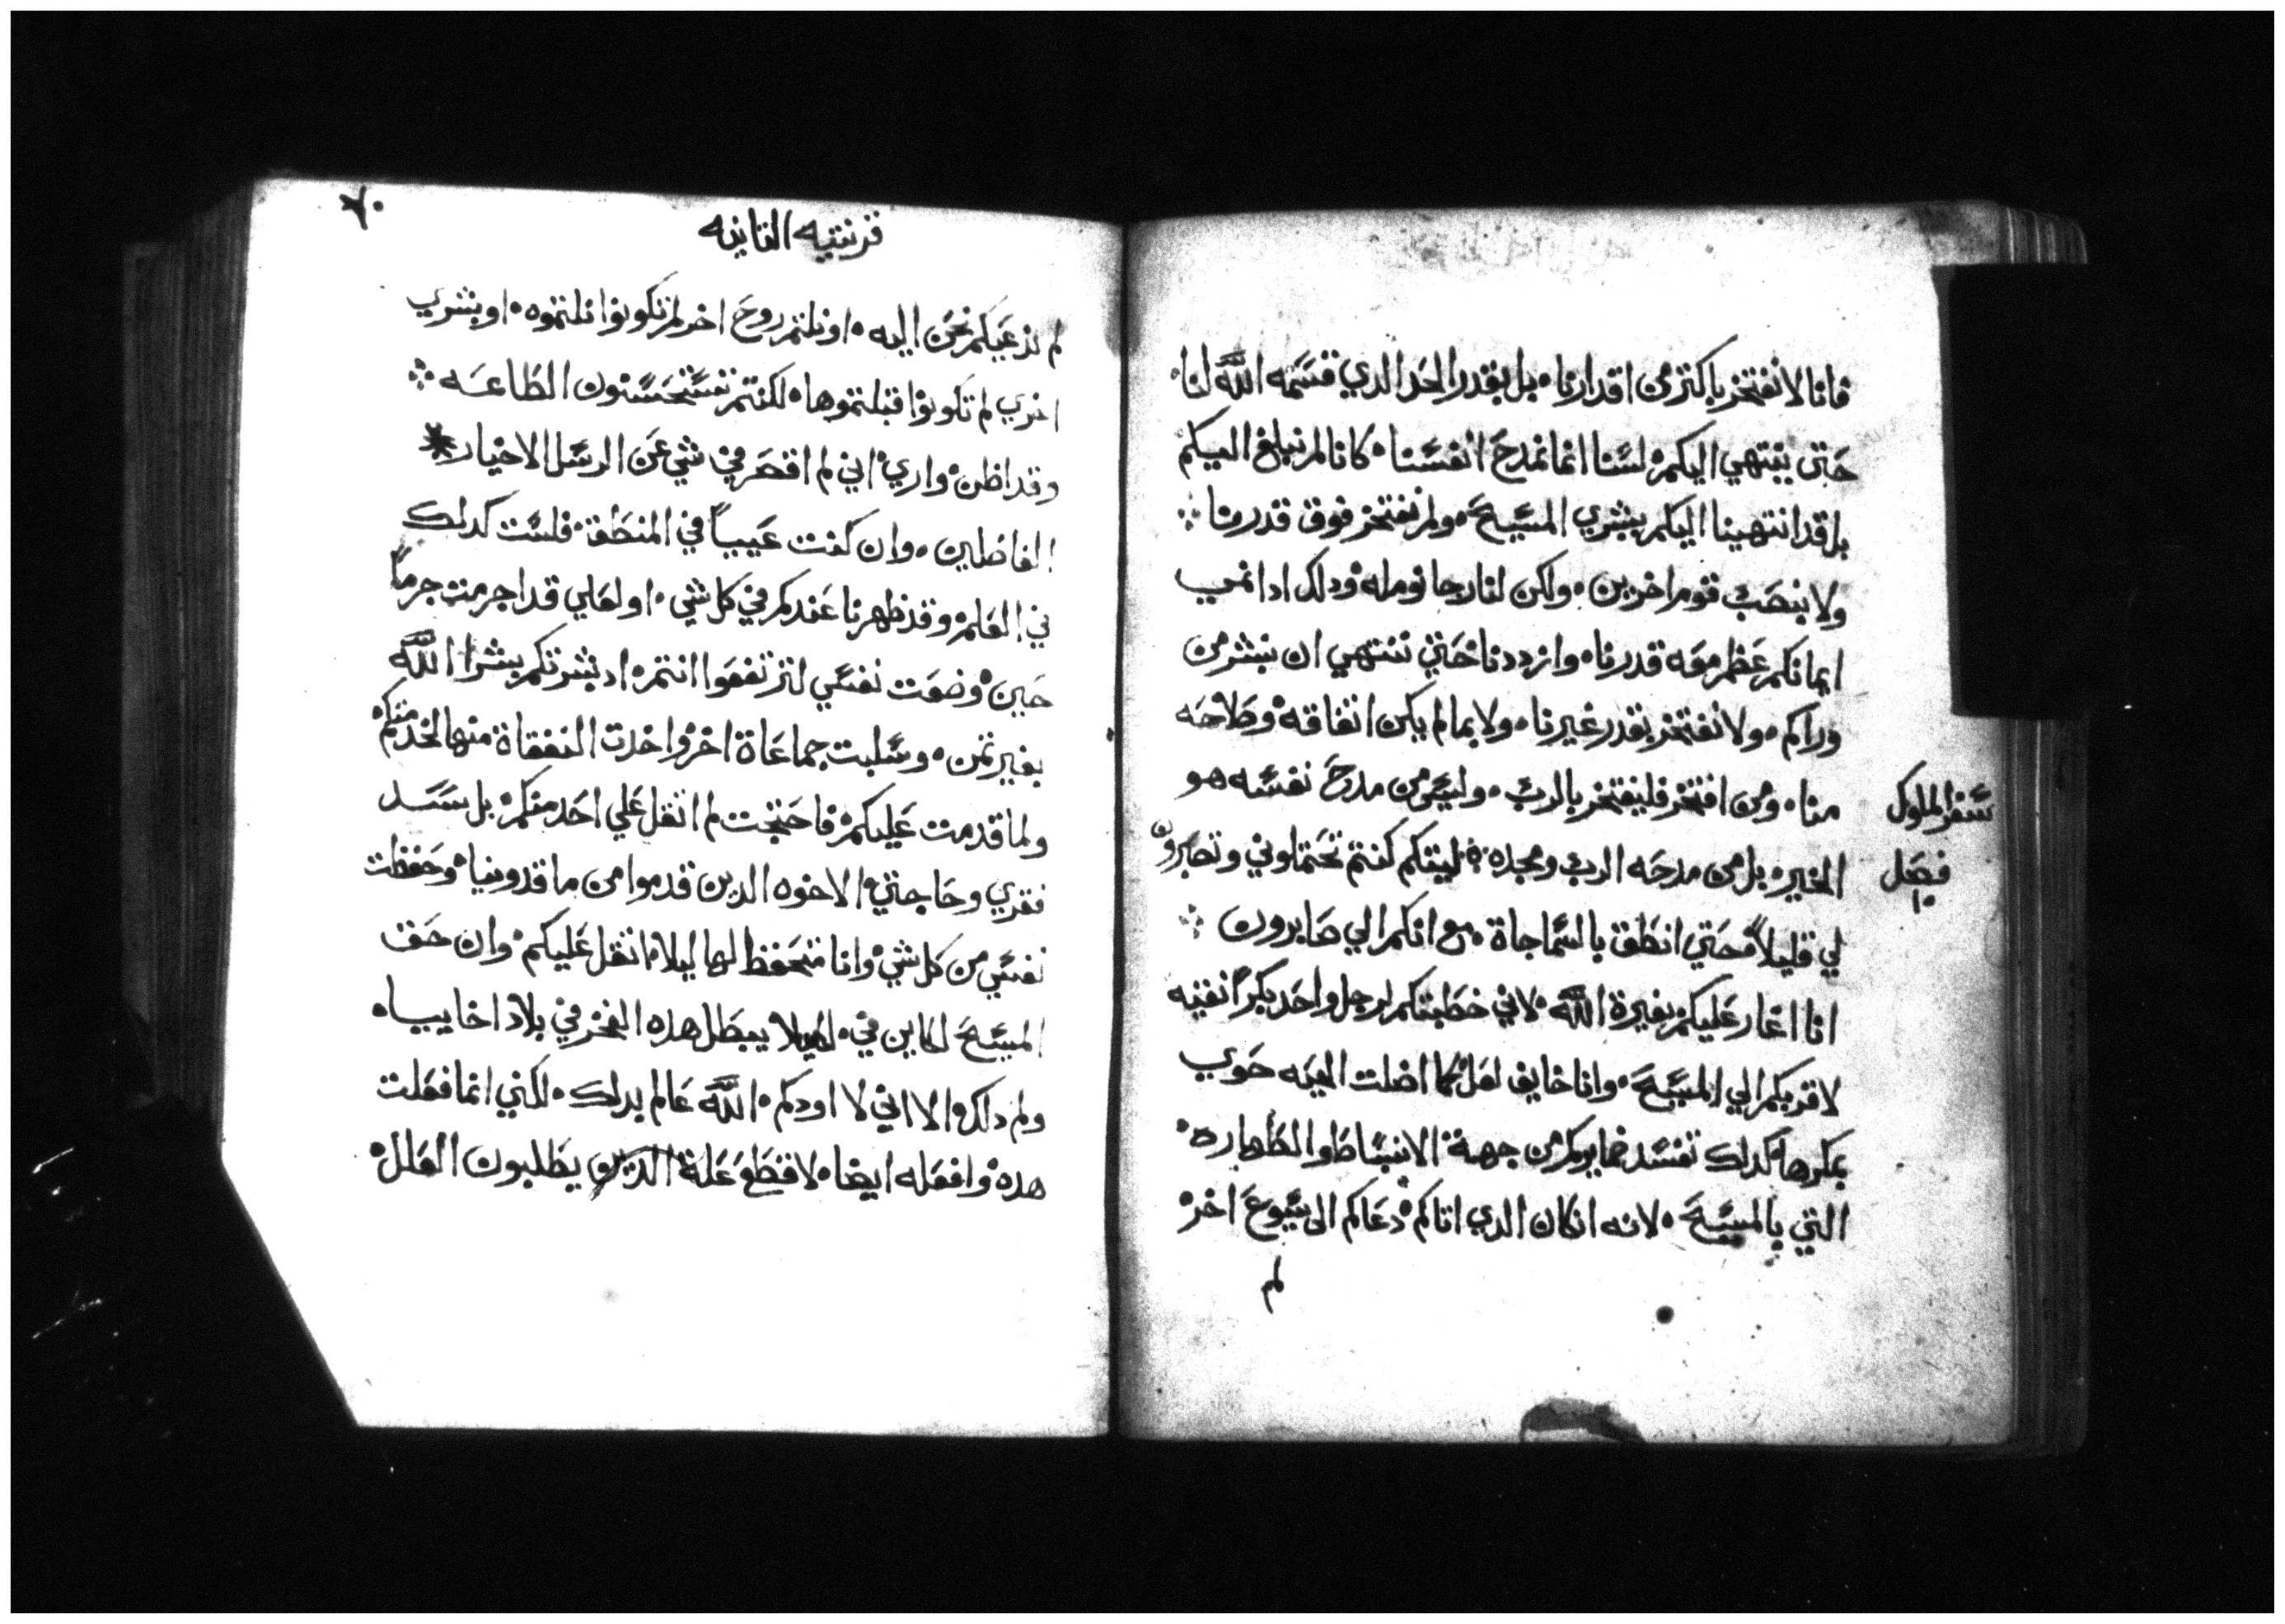 فانا لا نفتخر باكتر من اقدارنا، بل بقدر الحد الدي قسمه الله لنا
حتى ينتهي اليكم لسنا انما نمدح انفسنا كانا لم نبلغ اليكم
بل قد انتهينا اليكم ببشري المسيح ولم نفتخر فوق قدرنا
ولا بنصب قوم اخرين ولكن لنا رجا نومله ودلك ادا نمي
ايمانكم عظم معه قدرنا وازددنا حتي ننتهي ان نبشر من
وراكم ولا نفتخر بقدر غيرنا ولا بما لم يكن اتقاقه وصلاحه
منا ومن افتخر فليفتخر بالرب وليس من مدح نفسه هو
الخير بل من مدحه الرب ومجده ليتكم كنتم تحتملوني وتصبرون
لي قليلاً حتي انطق بالسماجاة مع انكم الي صابرون
انا اغار عليكم بغيرة الله لاني خطبتكم لرجل واحد بكراً نقيه
لاقربكم الي المسيح وانا خايف لعل كما اضلت الحيه حوي
بمكرها كدلك تفسد ضمايركم من جهة الانبساط والطهاره
التي بالمسيح لانه ان كان الدي اتاكم دعاكم الى يسوع اخر
لم
سفر الملوك
فصل
١٠
٧٠
قرنتيه التانيه
لم ندعيكم نحن اليه او نلتم روح اخر لم تكونوا نلتموه او بشري
اخري لم تكونوا قبلتموها لكنتم تستحسنون الطاعه
وقد اظن واري اني لم اقصر في شي عن الرسل الاخيار
الفاضلين وان كنت عيياً في المنطق فلست كدلك
في العلم وقد ظهرنا عندكم في كل شي او لعلي قد اجرمت جرماً
حين وضعت نفسي لترتفعوا انتم اد بشرتكم ببشرا الله
بغير تمن وسلبت جماعاة اخر واخدت النفقاة منها لخدمتكم
ولما قدمت عليكم فاحتجت لم اتقل علي احد منكم بل سد
فقري وحاجتي الاخوه الدين قدموا من ماقدونيا وحفظت
نفسي من كل شي وانا متحفظ لها ليلا اتقل عليكم وان حق
المسيح لكاين في ليلا يبطل هده الفخر في بلاد اخاييا
ولم دلك الا اني لا اودكم الله عالم بدلك لكني انما فعلت
هده وافعله ايضا لاقطع علة الدين يطلبون العلل